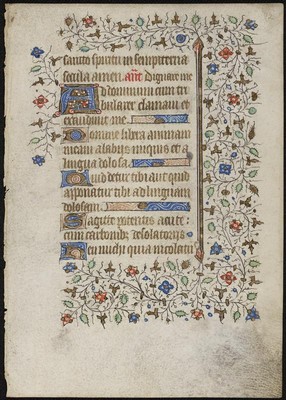 sancto spiritu in sempiterna
secula amen. ant Dignare me
Ad dominum cum tri
bularer clamavi et
exaudivit me.
Domine libera animam
meam a labiis iniquis et a
lingua dolosa.
Quid detur tibi aut quid
apponatur tibi ad linguam
dolosam.
Sagitte potentis acute:
cum carbonibus desolatoriis.
Heu michi quia incolatus